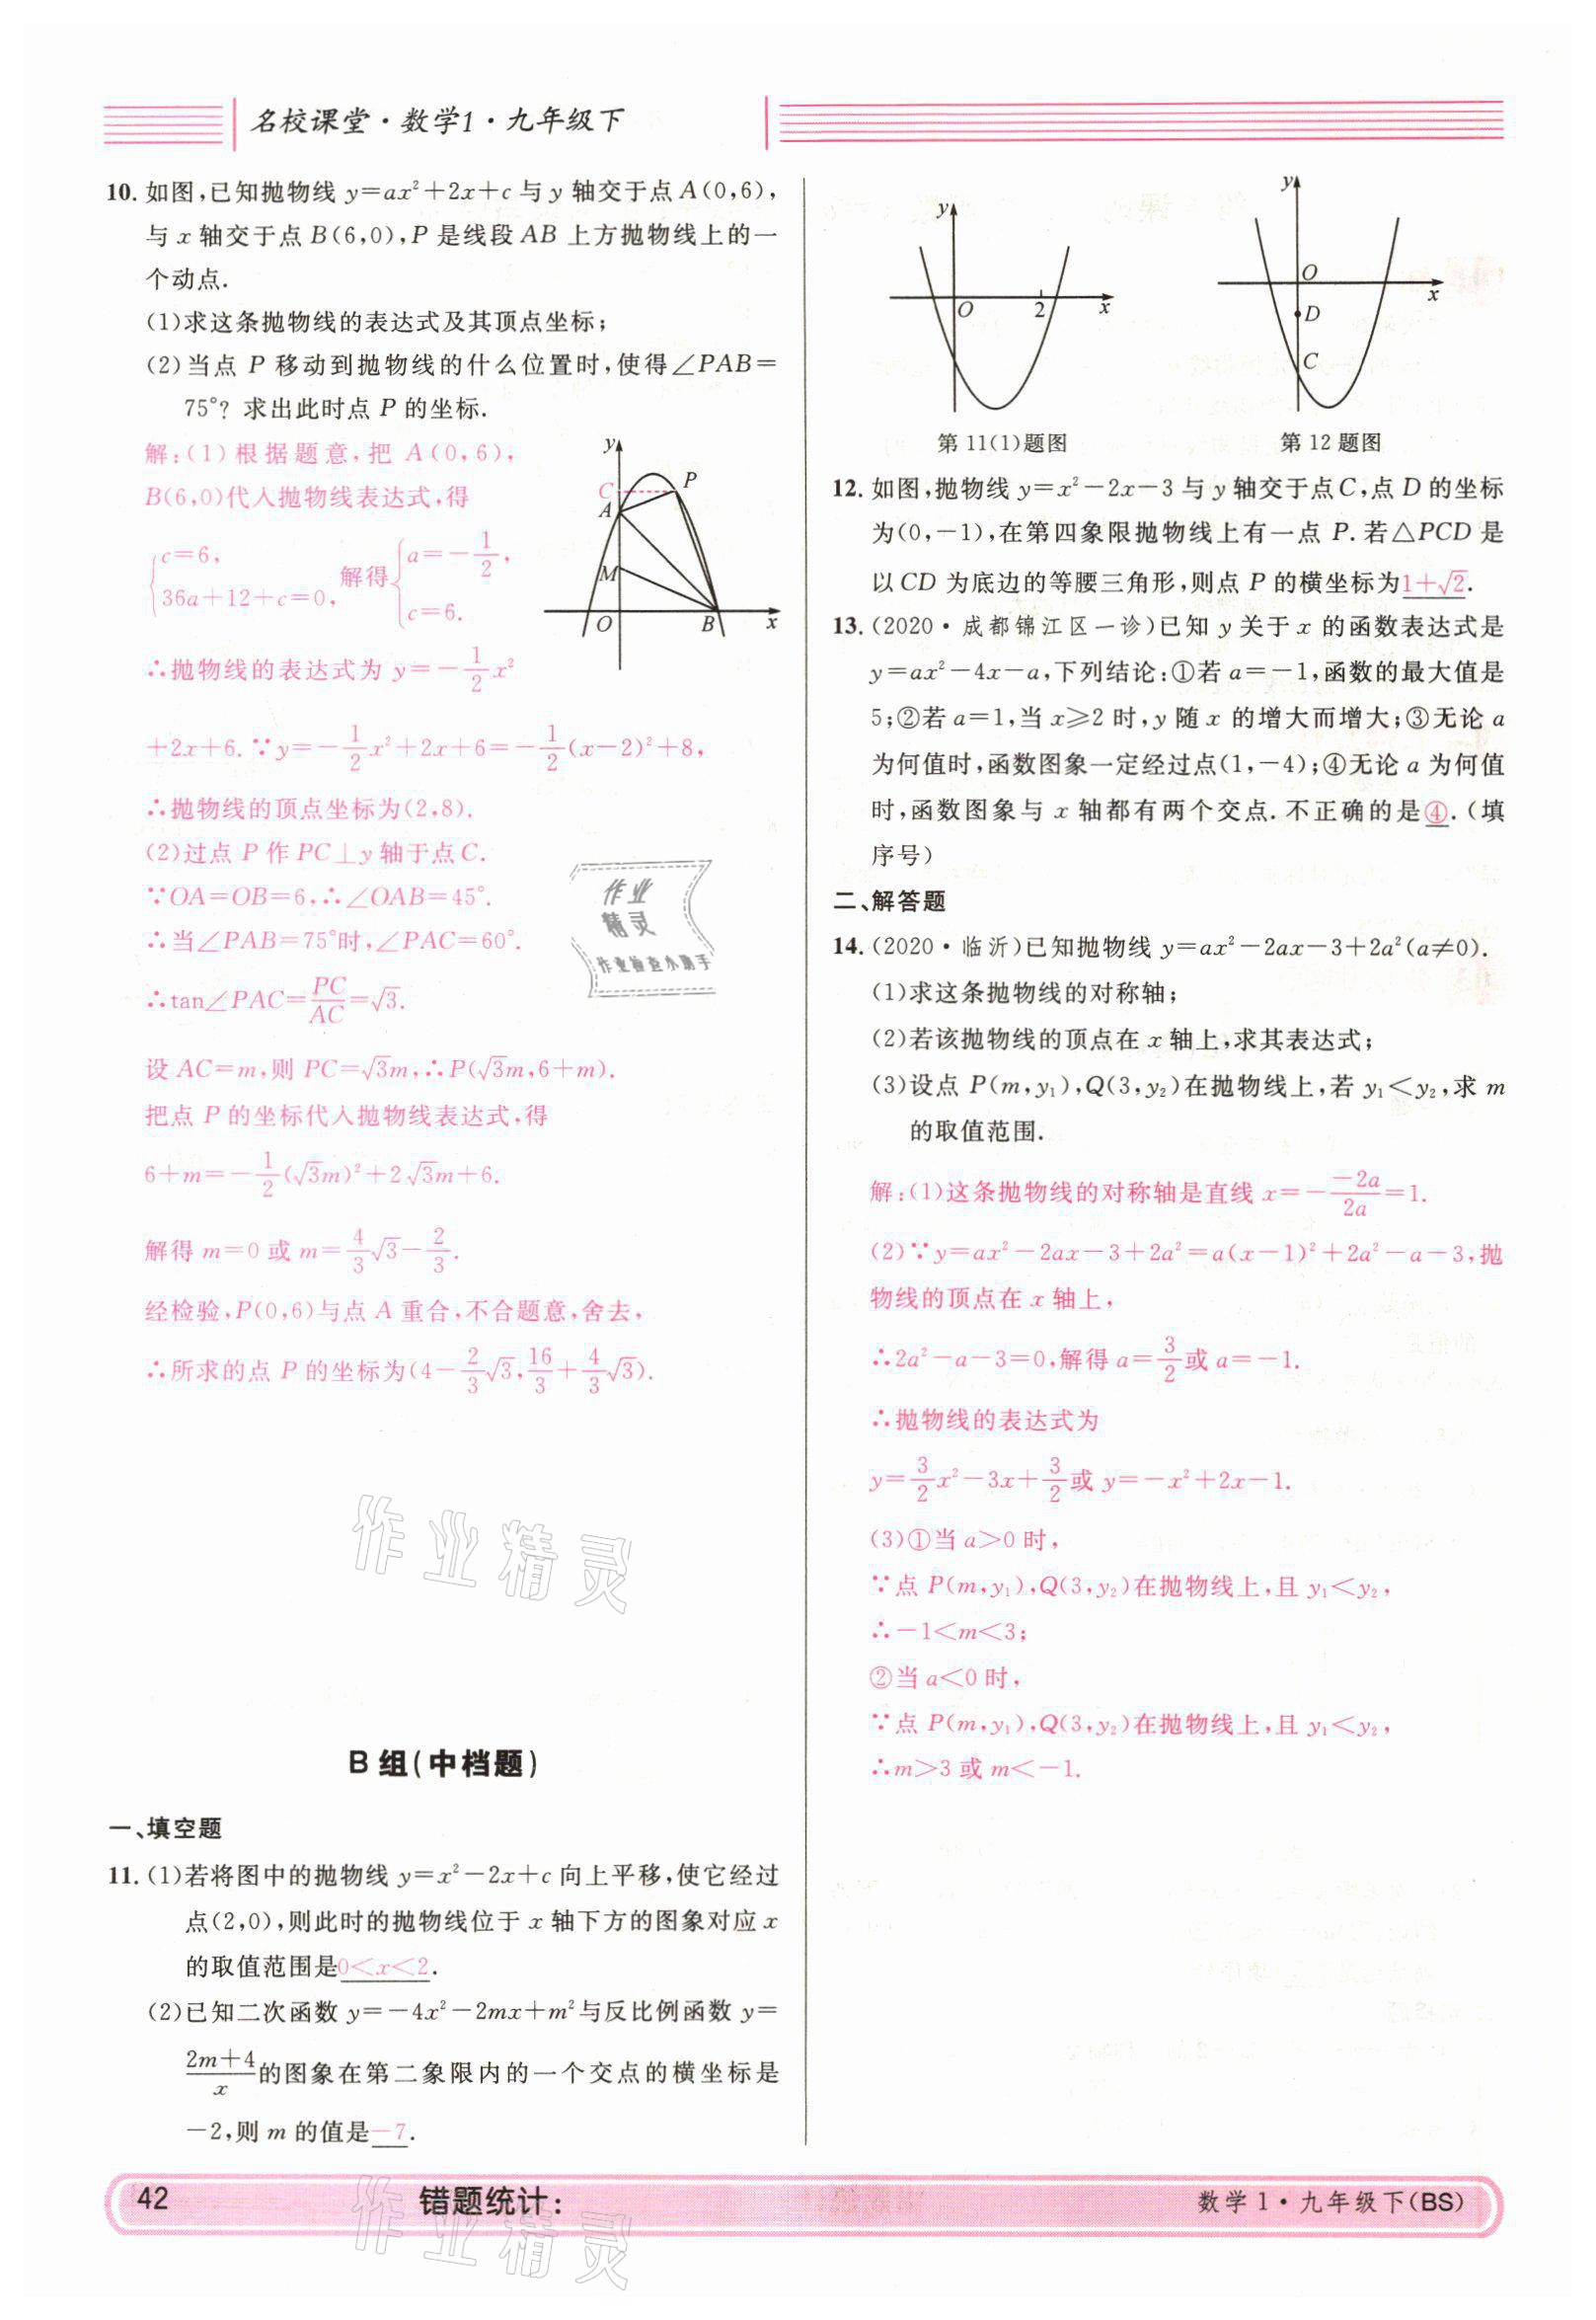 名校课堂·数学1·九年级下
10. 如图,已知抛物线 y=ax²+2x+c 与 y 轴交于点 A(0,6),
与 x 轴交于点 B(6,0),P 是线段 AB 上方抛物线上的一
个动点.
(1)求这条抛物线的表达式及其顶点坐标;
(2)当点 P 移动到抛物线的什么位置时,使得∠PAB=
75°? 求出此时点 P 的坐标.
解:(1)根据题意,把 A(0,6),
B(6,0)代入抛物线表达式,得
{c=6, 36a+12+c=0, 解得{a=-1/2, c=6.
y
C
P
A
M
O
B
x
∴抛物线的表达式为 y=-1/2x²
+2x+6.∵y=-1/2x²+2x+6=-1/2(x-2)²+8,
∴抛物线的顶点坐标为(2,8).
(2)过点 P 作 PC⊥y 轴于点 C.
∵OA=OB=6,∴∠OAB=45°.
∴当∠PAB=75°时,∠PAC=60°.
∴tan∠PAC=PC/AC=√3.
设 AC=m,则 PC=√3m,∴P(√3m,6+m).
把点 P 的坐标代入抛物线表达式,得
6+m=-1/2(√3m)²+2√3m+6.
解得 m=0 或 m=4/3√3-2/3.
经检验,P(0,6)与点 A 重合,不合题意,舍去,
∴所求的点 P 的坐标为(4-2/3√3,16/3+4/3√3).
作业
精灵
作业检查小助手
作业精灵
B 组(中档题)
一、填空题
11. (1)若将图中的抛物线 y=x²-2x+c 向上平移,使它经过
点(2,0),则此时的抛物线位于 x 轴下方的图象对应 x
的取值范围是0<x<2.
(2)已知二次函数 y=-4x²-2mx+m²与反比例函数 y=
(2m+4)/x的图象在第二象限内的一个交点的横坐标是
-2,则 m 的值是-7.
y
O
2
x
第 11(1)题图
y
O
x
D
C
第 12 题图
12. 如图,抛物线 y=x²-2x-3 与 y 轴交于点 C,点 D 的坐标
为(0,-1),在第四象限抛物线上有一点 P.若△PCD 是
以 CD 为底边的等腰三角形,则点 P 的横坐标为1+√2.
13. (2020·成都锦江区一诊)已知 y 关于 x 的函数表达式是
y=ax²-4x-a,下列结论:①若 a=-1,函数的最大值是
5;②若 a=1,当 x⩾2 时,y 随 x 的增大而增大;③无论 a
为何值时,函数图象一定经过点(1,-4);④无论 a 为何值
时,函数图象与 x 轴都有两个交点.不正确的是④.(填
序号)
二、解答题
14. (2020·临沂)已知抛物线 y=ax²-2ax-3+2a²(a≠0).
(1)求这条抛物线的对称轴;
(2)若该抛物线的顶点在 x 轴上,求其表达式;
(3)设点 P(m,y₁),Q(3,y₂)在抛物线上,若 y₁<y₂,求 m
的取值范围.
解:(1)这条抛物线的对称轴是直线 x=-(-2a)/2a=1.
(2)∵y=ax²-2ax-3+2a²=a(x-1)²+2a²-a-3,抛
物线的顶点在 x 轴上,
∴2a²-a-3=0,解得 a=3/2或 a=-1.
∴抛物线的表达式为
y=3/2x²-3x+3/2或 y=-x²+2x-1.
(3)①当 a>0 时,
∵点 P(m,y₁),Q(3,y₂)在抛物线上,且 y₁<y₂,
∴-1<m<3;
②当 a<0 时,
∵点 P(m,y₁),Q(3,y₂)在抛物线上,且 y₁<y₂,
∴m>3 或 m<-1.
42
错题统计:
作业精灵
数学 1·九年级下(BS)